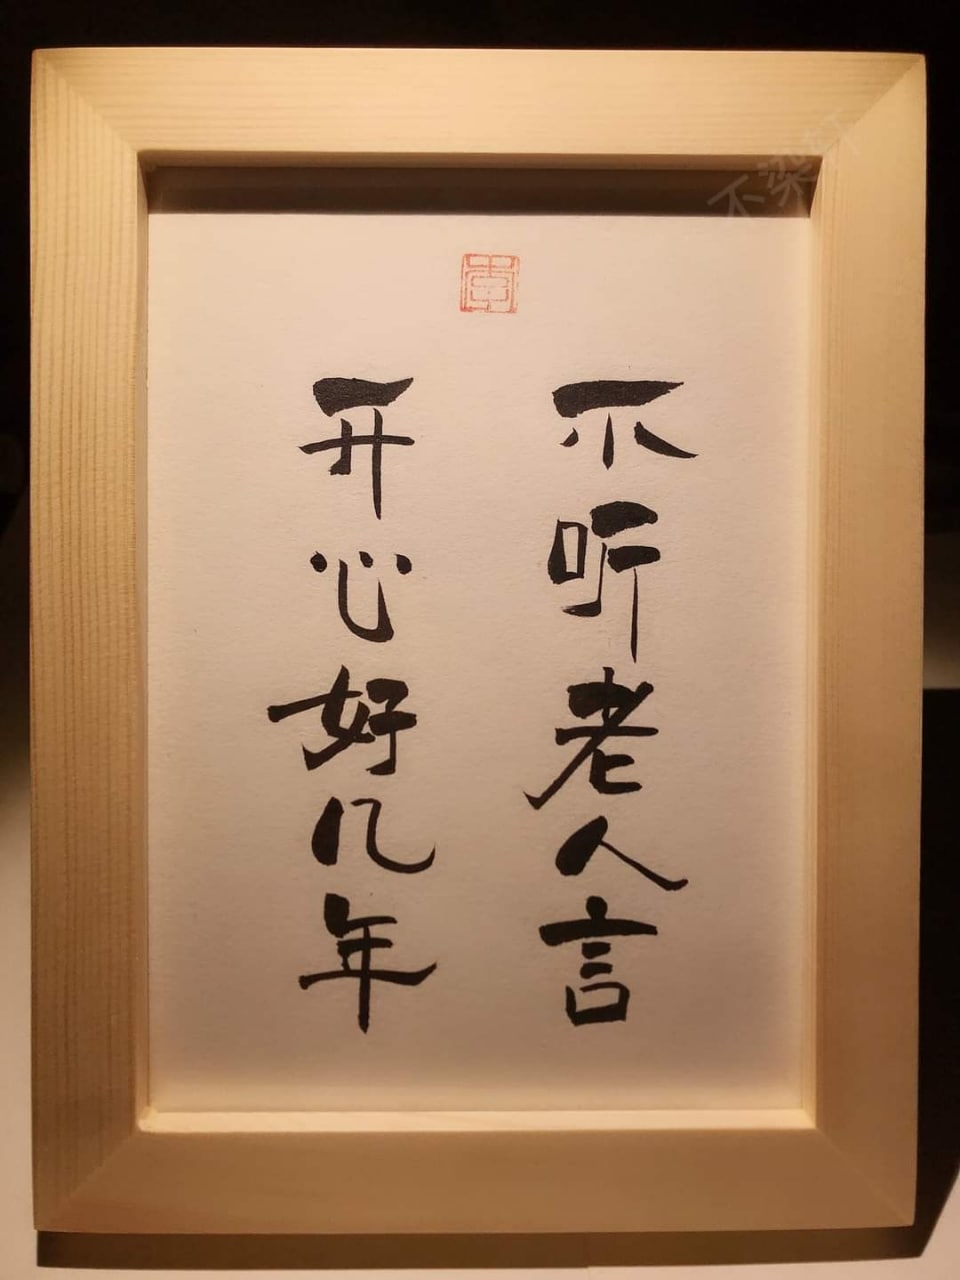 不听老人言
开心好几年
不染